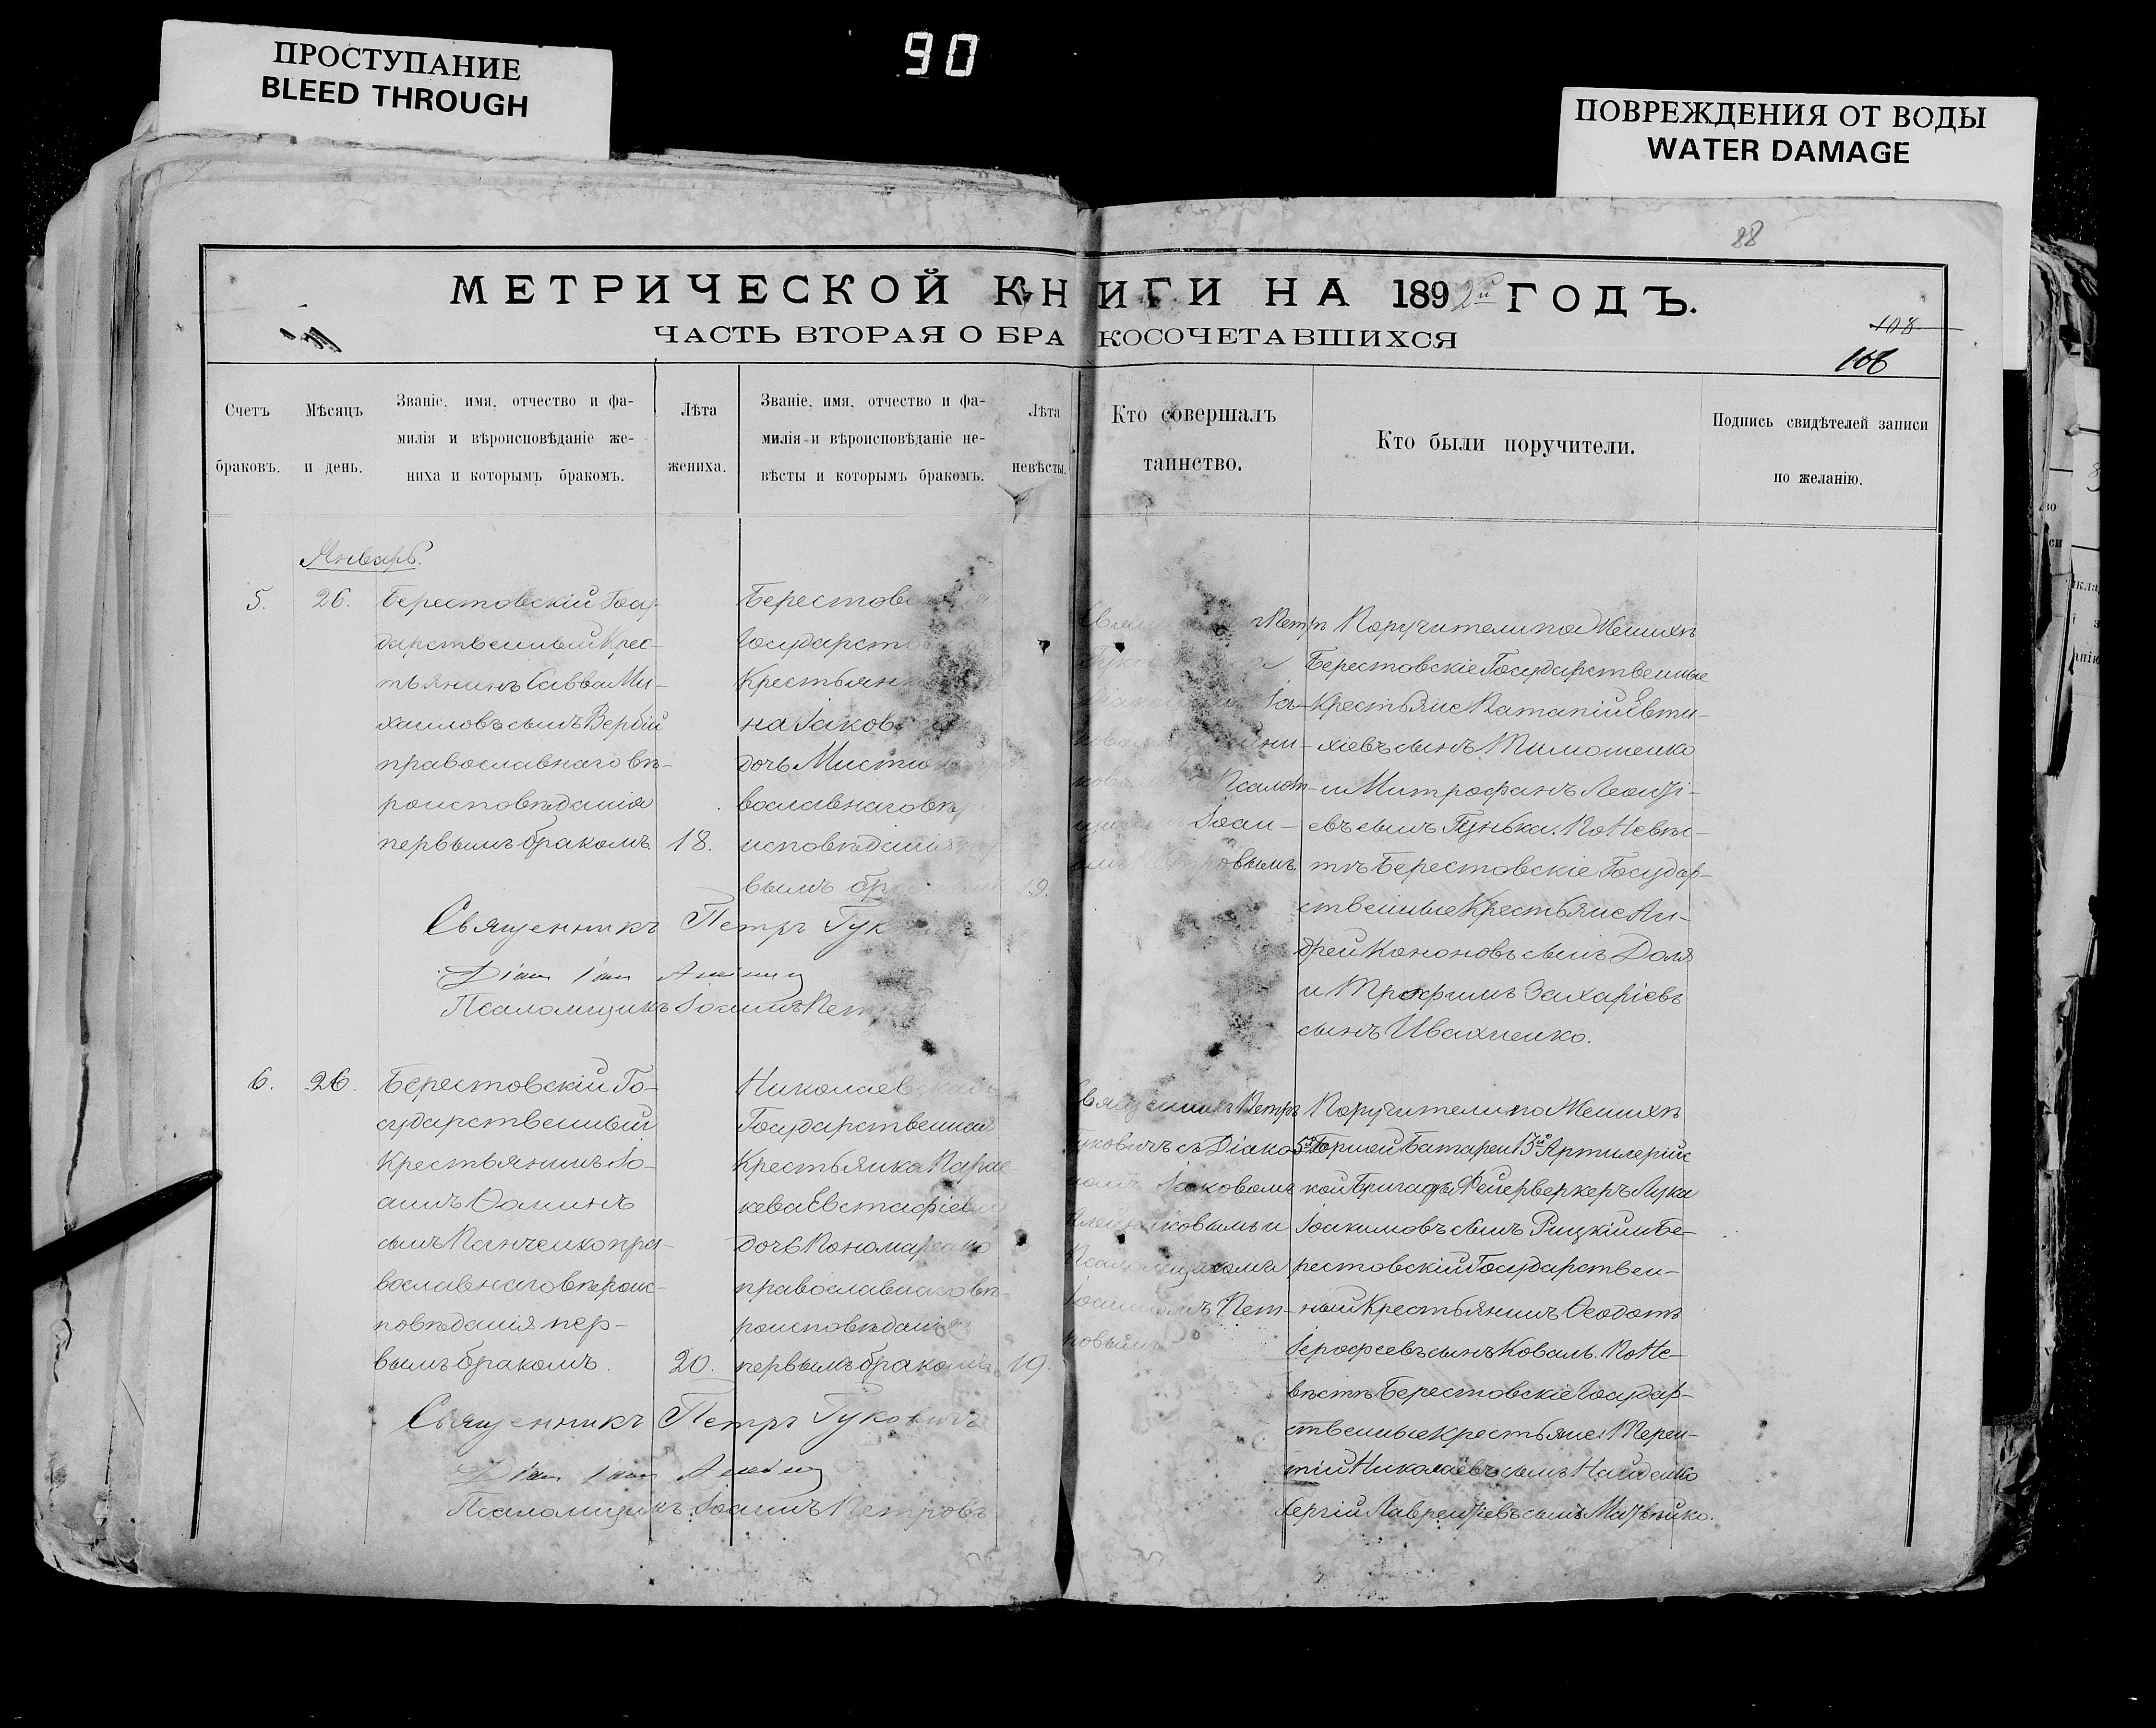 ПРОСТУПАНИЕ
BLEED THROUGH
90
ПОВРЕЖДЕНИЯ ОТ ВОДЫ
WATER DAMAGE
88
МЕТРИЧЕСКОЙ КНИГИ НА 1892й ГОДЪ.
ЧАСТЬ ВТОРАЯ О БРАКОСОЧЕТАВШИХСЯ
108
106
Счетъ
браковъ.
Мѣсяцъ
и день.
Званіе, имя, отчество и фа-
милія и вѣроисповѣданіе же-
ниха и которымъ бракомъ.
Лѣта
жениха.
Званіе, имя, отчество и фа-
милія и вѣроисповѣданіе не-
вѣсты и которымъ бракомъ.
Лѣта
невѣсты.
Кто совершалъ
таинство.
Кто были поручители.
Подпись свидѣтелей записи
по желанію.
Январь.
5.
26.
Берестовскій Госу-
дарственный Крес-
тьянинъ Савва Ми-
хаиловъ сынъ Вербій
православнаго вѣ-
роисповѣданія
первымъ бракомъ.
18.
Берестовс
Государств
Крестьянк
на Іаков
дочь
вославнаго вѣ
исповѣданія
вымъ бр
19.
Петръ
Іа-
Псалом-
Іоан-
Петровымъ.
Поручители по Женихѣ
Берестовскіе Государственные
Крестьяне Патапій Евти-
хіевъ сынъ Тимошенко
и Митрофанъ Леонті-
евъ сынъ Пунька. По Невѣс-
тѣ Берестовскіе Государ-
ственные Крестьяне Ан-
дрей Кононовъ сынъ Доля
и Трофимъ Захаріевъ
сынъ Ивахненко.
Священникъ Петръ Гук
Псаломщикъ Іоаннъ Пет
6.
26.
Берестовскій Го-
сударственный
Крестьянинъ Іо-
аннъ Ѳоминъ
сынъ Панченко пра-
вославнаго вѣроис-
повѣданія пер-
вымъ бракомъ.
20.
Николаевская
Государственная
Крестьянка Парас
кева Евстафіева
дочь Пономаренко
православнаго вѣ-
роисповѣданія
первымъ бракомъ.
19.
Священникъ Петръ
Гуковичъ съ Діако-
номъ Іаковомъ
Алейниковымъ и
Псаломщикомъ
Іоанномъ Пет-
ровымъ
Поручители по Женихѣ
5й Горной Батареи 13й Артилерійс
кой Бригады Фейерверкеръ Лука
Іоакимовъ сынъ Рицкій и Бе-
рестовскій Государствен-
ный Крестьянинъ Ѳеодотъ
Іерофеевъ сынъ Коваль. По Не-
вѣстѣ Берестовскіе Государ-
ственные крестьяне: Терен-
тій Николаевъ сынъ Найденко
Сергій Лаврентіевъ сынъ Матвѣйко.
Священникъ Петръ Гуковичъ
Псаломщикъ Іоаннъ Петровъ